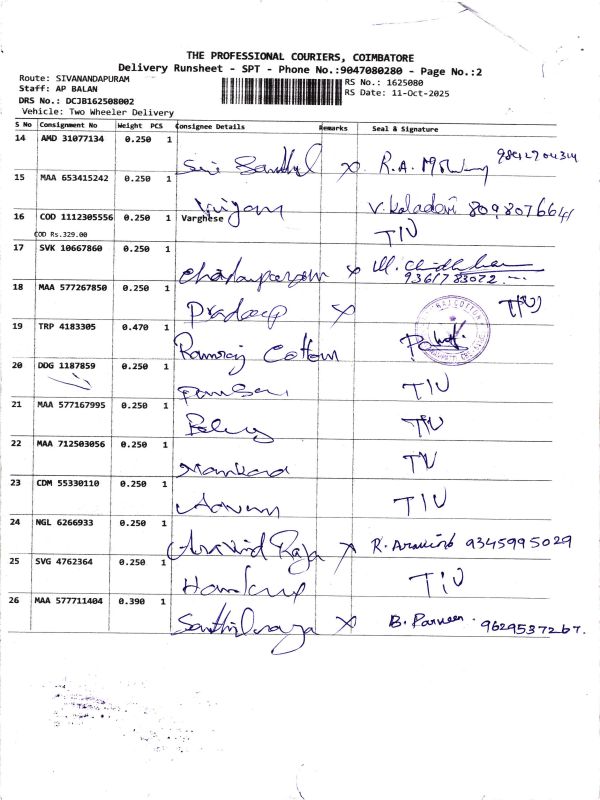 THE PROFESSIONAL COURIERS, COIMBATORE
Delivery Runsheet - SPT - Phone No.:9047080280 - Page No.:2
Route: SIVANANDAPURAM
Staff: AP BALAN
DRS No.: DCJB162508002
Vehicle: Two Wheeler Delivery
RS No.: 1625080
RS Date: 11-Oct-2025
S No Consignment No Weight PCS Consignee Details Remarks Seal & Signature
14 AMD 31077134 0.250 1
R.A.
15 MAA 653415242 0.250 1
V. Kaladevi 8098076641
16 COD 1112305556 0.250 1 Varghese TIU
COD Rs.329.00
17 SVK 10667860 0.250 1
9361783072
18 MAA 577267850 0.250 1
Pradeep X TIU
19 TRP 4183305 0.470 1
Ramraj Cotton
20 DDG 1187859 0.250 1
TIU
21 MAA 577167995 0.250 1
TIU
22 MAA 712503056 0.250 1
TIU
23 CDM 55330110 0.250 1
TIU
24 NGL 6266933 0.250 1
Aravind Raja X R. Aravind 9345995029
25 SVG 4762364 0.250 1
TIU
26 MAA 577711404 0.390 1
X B. Parveen. 9629537267.